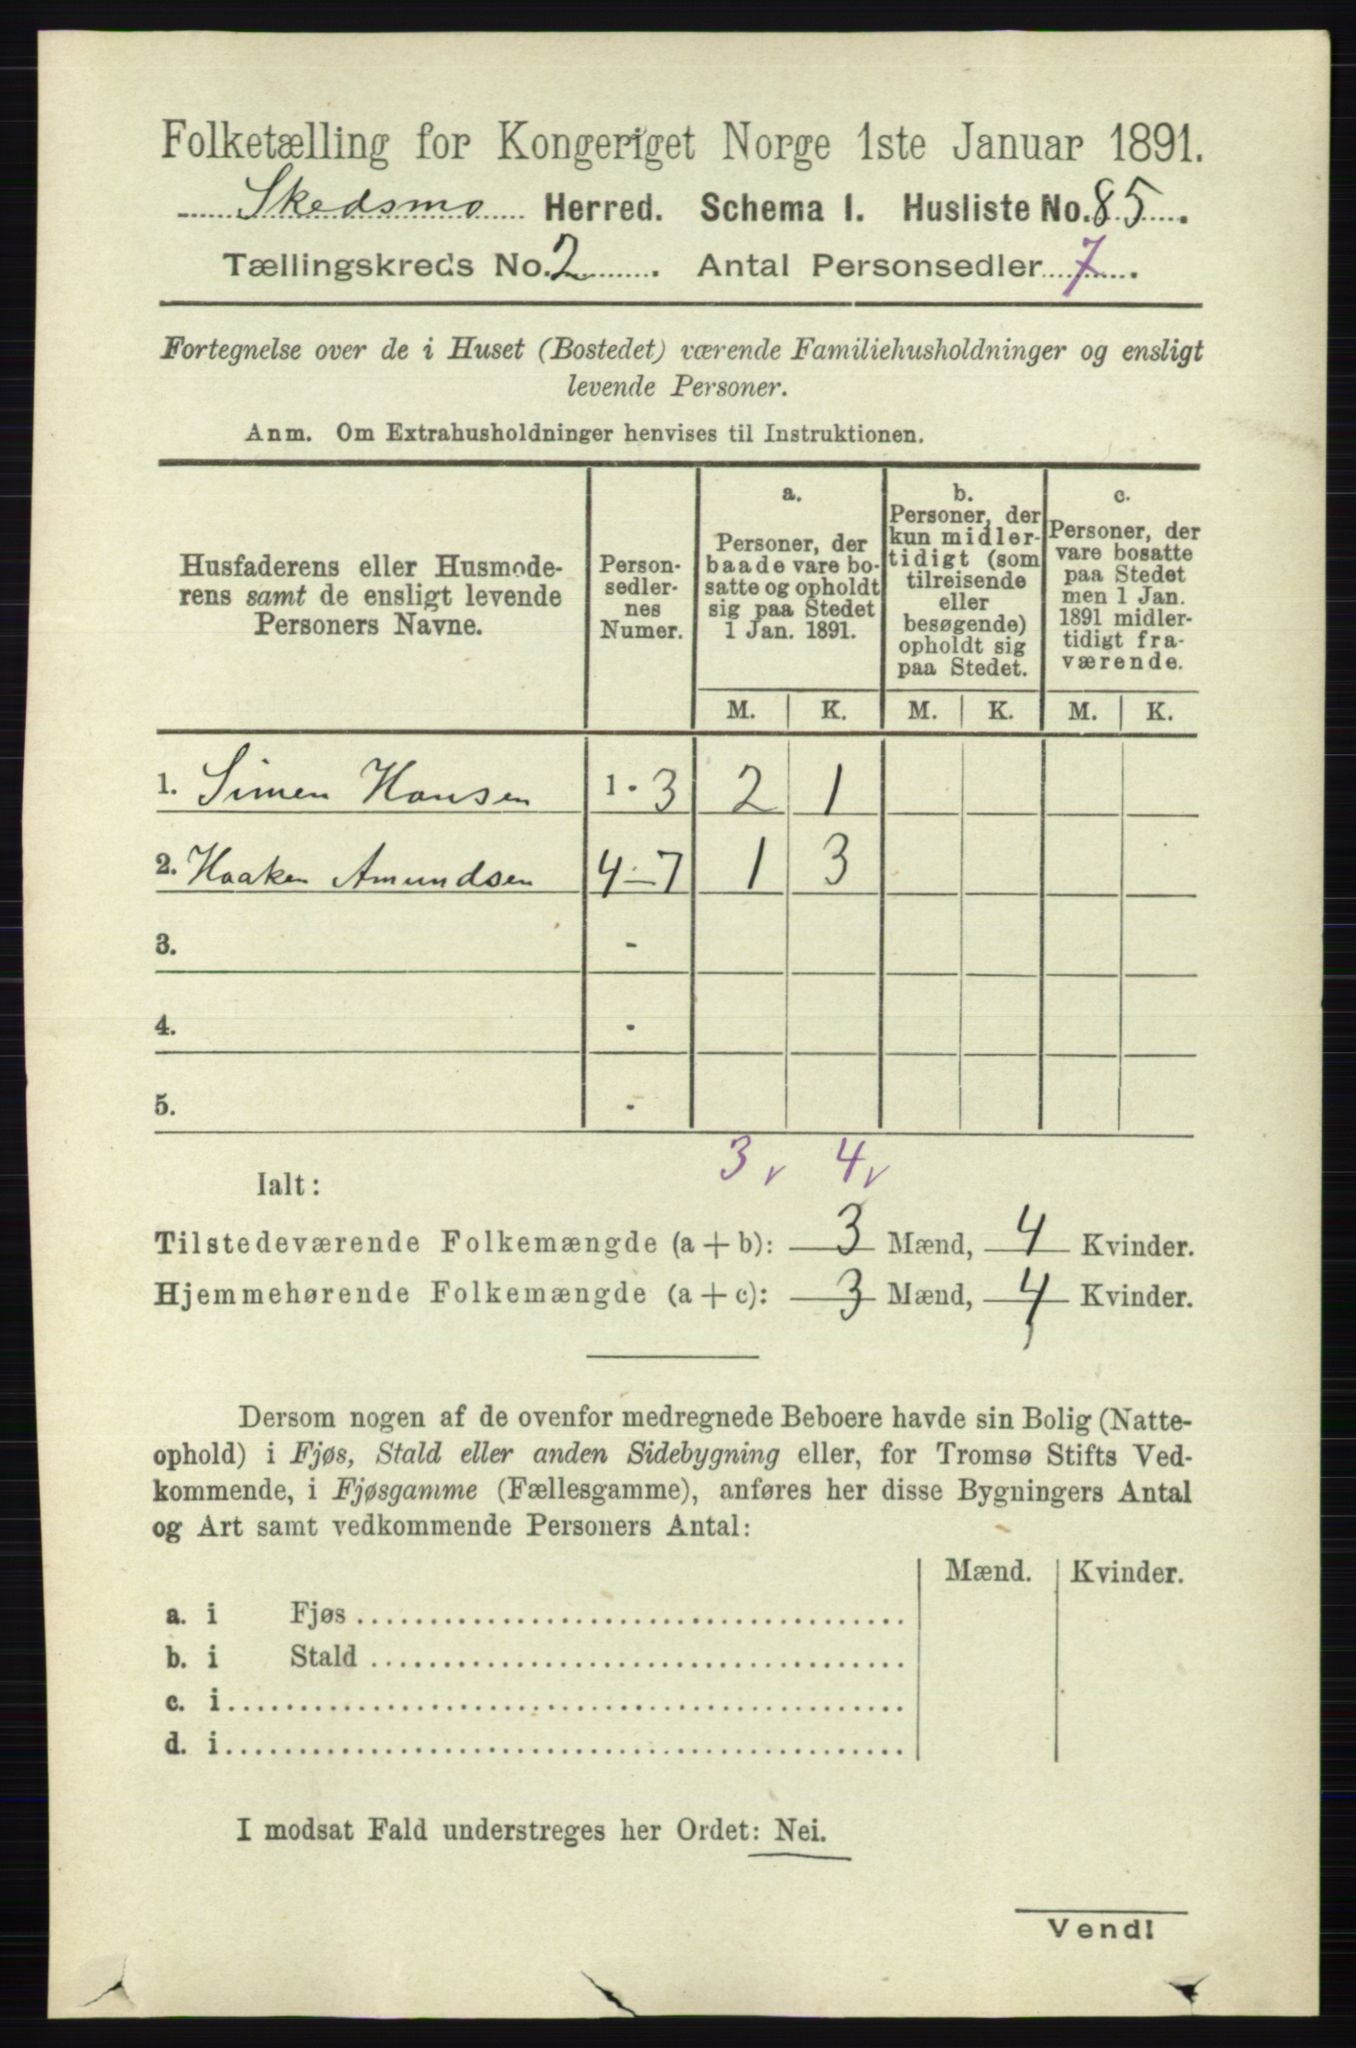 Folketælling for Kongeriget Norge 1ste Januar 1891.
Skedsmo Herred. Schema I. Husliste No. 85.
Tællingskreds No. 2. Antal Personsedler 7.
Fortegnelse over de i Huset (Bostedet) værende Familiehusholdninger og ensligt
levende Personer.
Anm. Om Extrahusholdninger henvises til Instruktionen.
Husfaderens eller Husmode-
rens samt de ensligt levende
Personers Navne.
Person-
sedler-
nes
Numer.
a.
Personer, der
baade vare bo-
satte og opholdt
sig paa Stedet
1 Jan. 1891.
b.
Personer, der
kun midler-
tidigt (som
tilreisende
eller
besøgende)
opholdt sig
paa Stedet.
c.
Personer, der
vare bosatte
paa Stedet
men 1 Jan.
1891 midler-
tidigt fra-
værende.
M. K. M. K. M. K.
1. Simen Hansen 1 - 3 2 1
2. Haaken Amundsen 4 - 7 1 3
3. -
4. -
5. -
3 v 4 v
Ialt:
Tilstedeværende Folkemængde (a + b): 3 Mænd, 4 Kvinder.
Hjemmehørende Folkemængde (a + c): 3 Mænd, 4 Kvinder.
Dersom nogen af de ovenfor medregnede Beboere havde sin Bolig (Natte-
ophold) i Fjøs, Stald eller anden Sidebygning eller, for Tromsø Stifts Ved-
kommende, i Fjøsgamme (Fællesgamme), anføres her disse Bygningers Antal
og Art samt vedkommende Personers Antal:
Mænd. Kvinder.
a. i Fjøs
b. i Stald
c. i
d. i
I modsat Fald understreges her Ordet: Nei.
Vend!